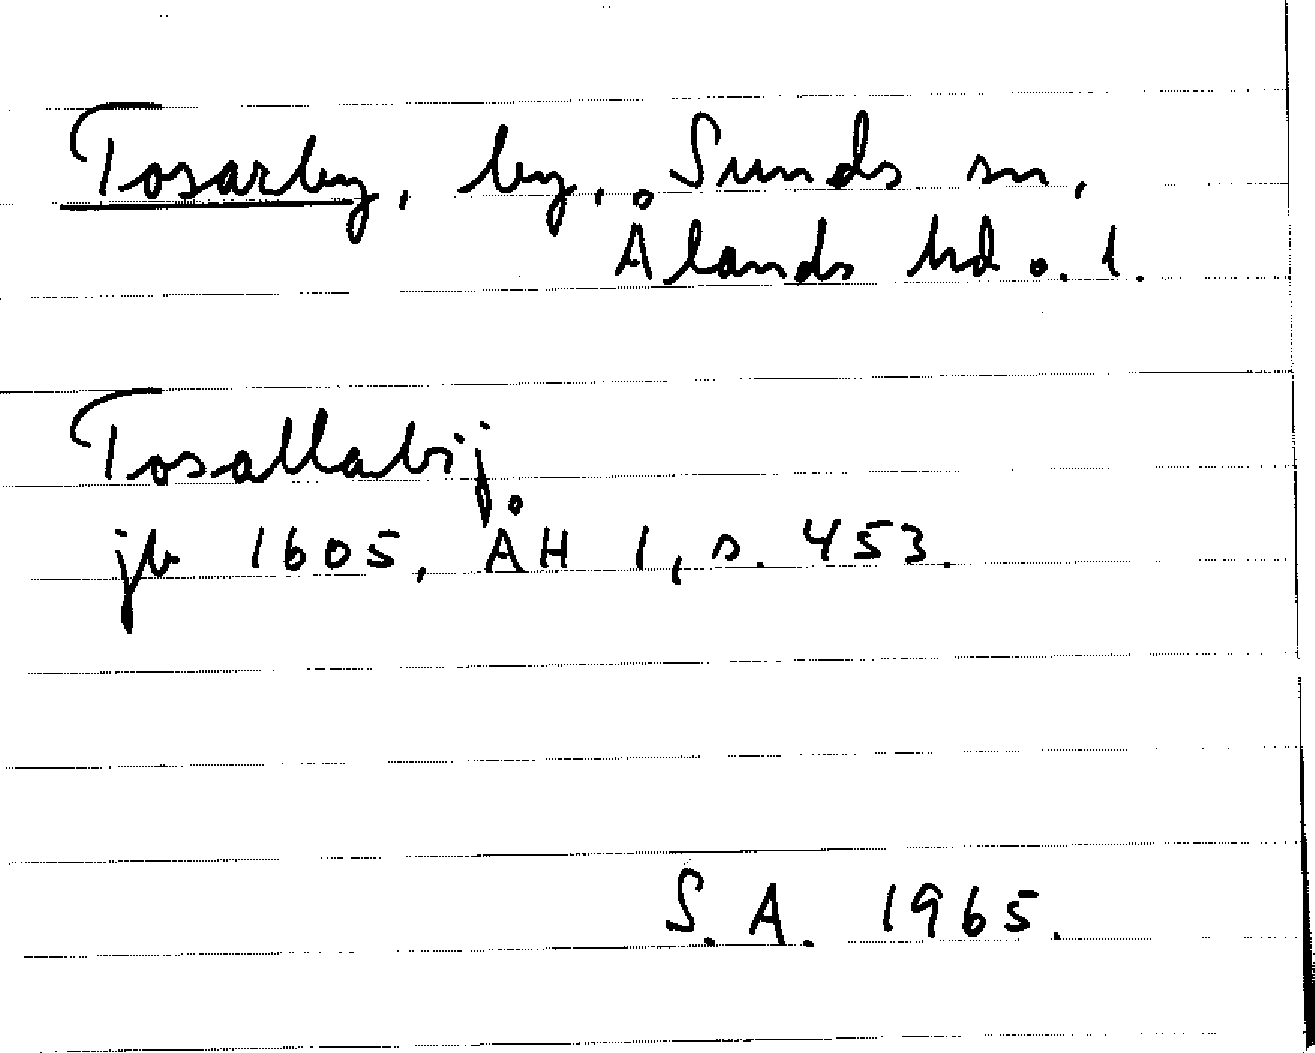 Tosarby, by, Sunds sn,
Ålands hd o. l.
Tosallabij
jb 1605, ÅH 1, s. 453.
S. A. 1965.